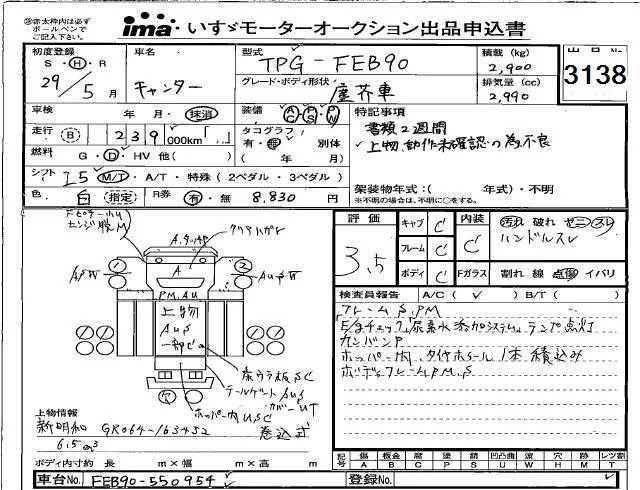 ㊟太枠内は必ず
ボールペンで
ご記入下さい。
ima いすゞモーターオークション出品申込書
初度登録 車名 型式 積載 (kg) 出品No
S・H・R キャンター TPG-FEB90 2,900 3138
29年 5月 グレード・ボディ形状 塵芥車 排気量 (cc) 2,990
車検 年・月・抹消 装備 AC PS PW 特記事項
走行 B 239,000km 「.」 タコグラフ 有・無 別体 書類2週間
上物、動作未確認の為不良
燃料 G・D・HV 他( ) ( 年 月)
シフト I5 M/T・A/T・特殊(2ペダル・3ペダル) 架装物年式:( 年式)・不明
色 白 指定 R券 有・無 8,830円 *不明の場合は、不明に○をする。
評価 3.5
キャブ C 内装 C 汚れ 破れ ヤニ スレ
フレーム C ハンドルスレ
ボディ C Fガラス 割れ 線 点傷 イバリ
検査員報告 A/C( ✓ ) B/T( )
フレームS,PM
E/gチェック、尿素水添加システムランプ点灯
カンバンP
ホッパー内、タイヤホイール1本積込み
ボディフレームPM,S
クリアハガレ
A
P M, A U
上物
AUS
一部ピ
ホッパー内USC
巻込式
上物情報
新明和 GR064-163452
6.5m3
ボディ内寸約 長 m×幅 m×高 m
記号 傷 板金 腐 塗 錆 凹凸曲 波 穴 跡 レツ割
A B C P S U W H M T
車台No. FEB90-550954 登録No.